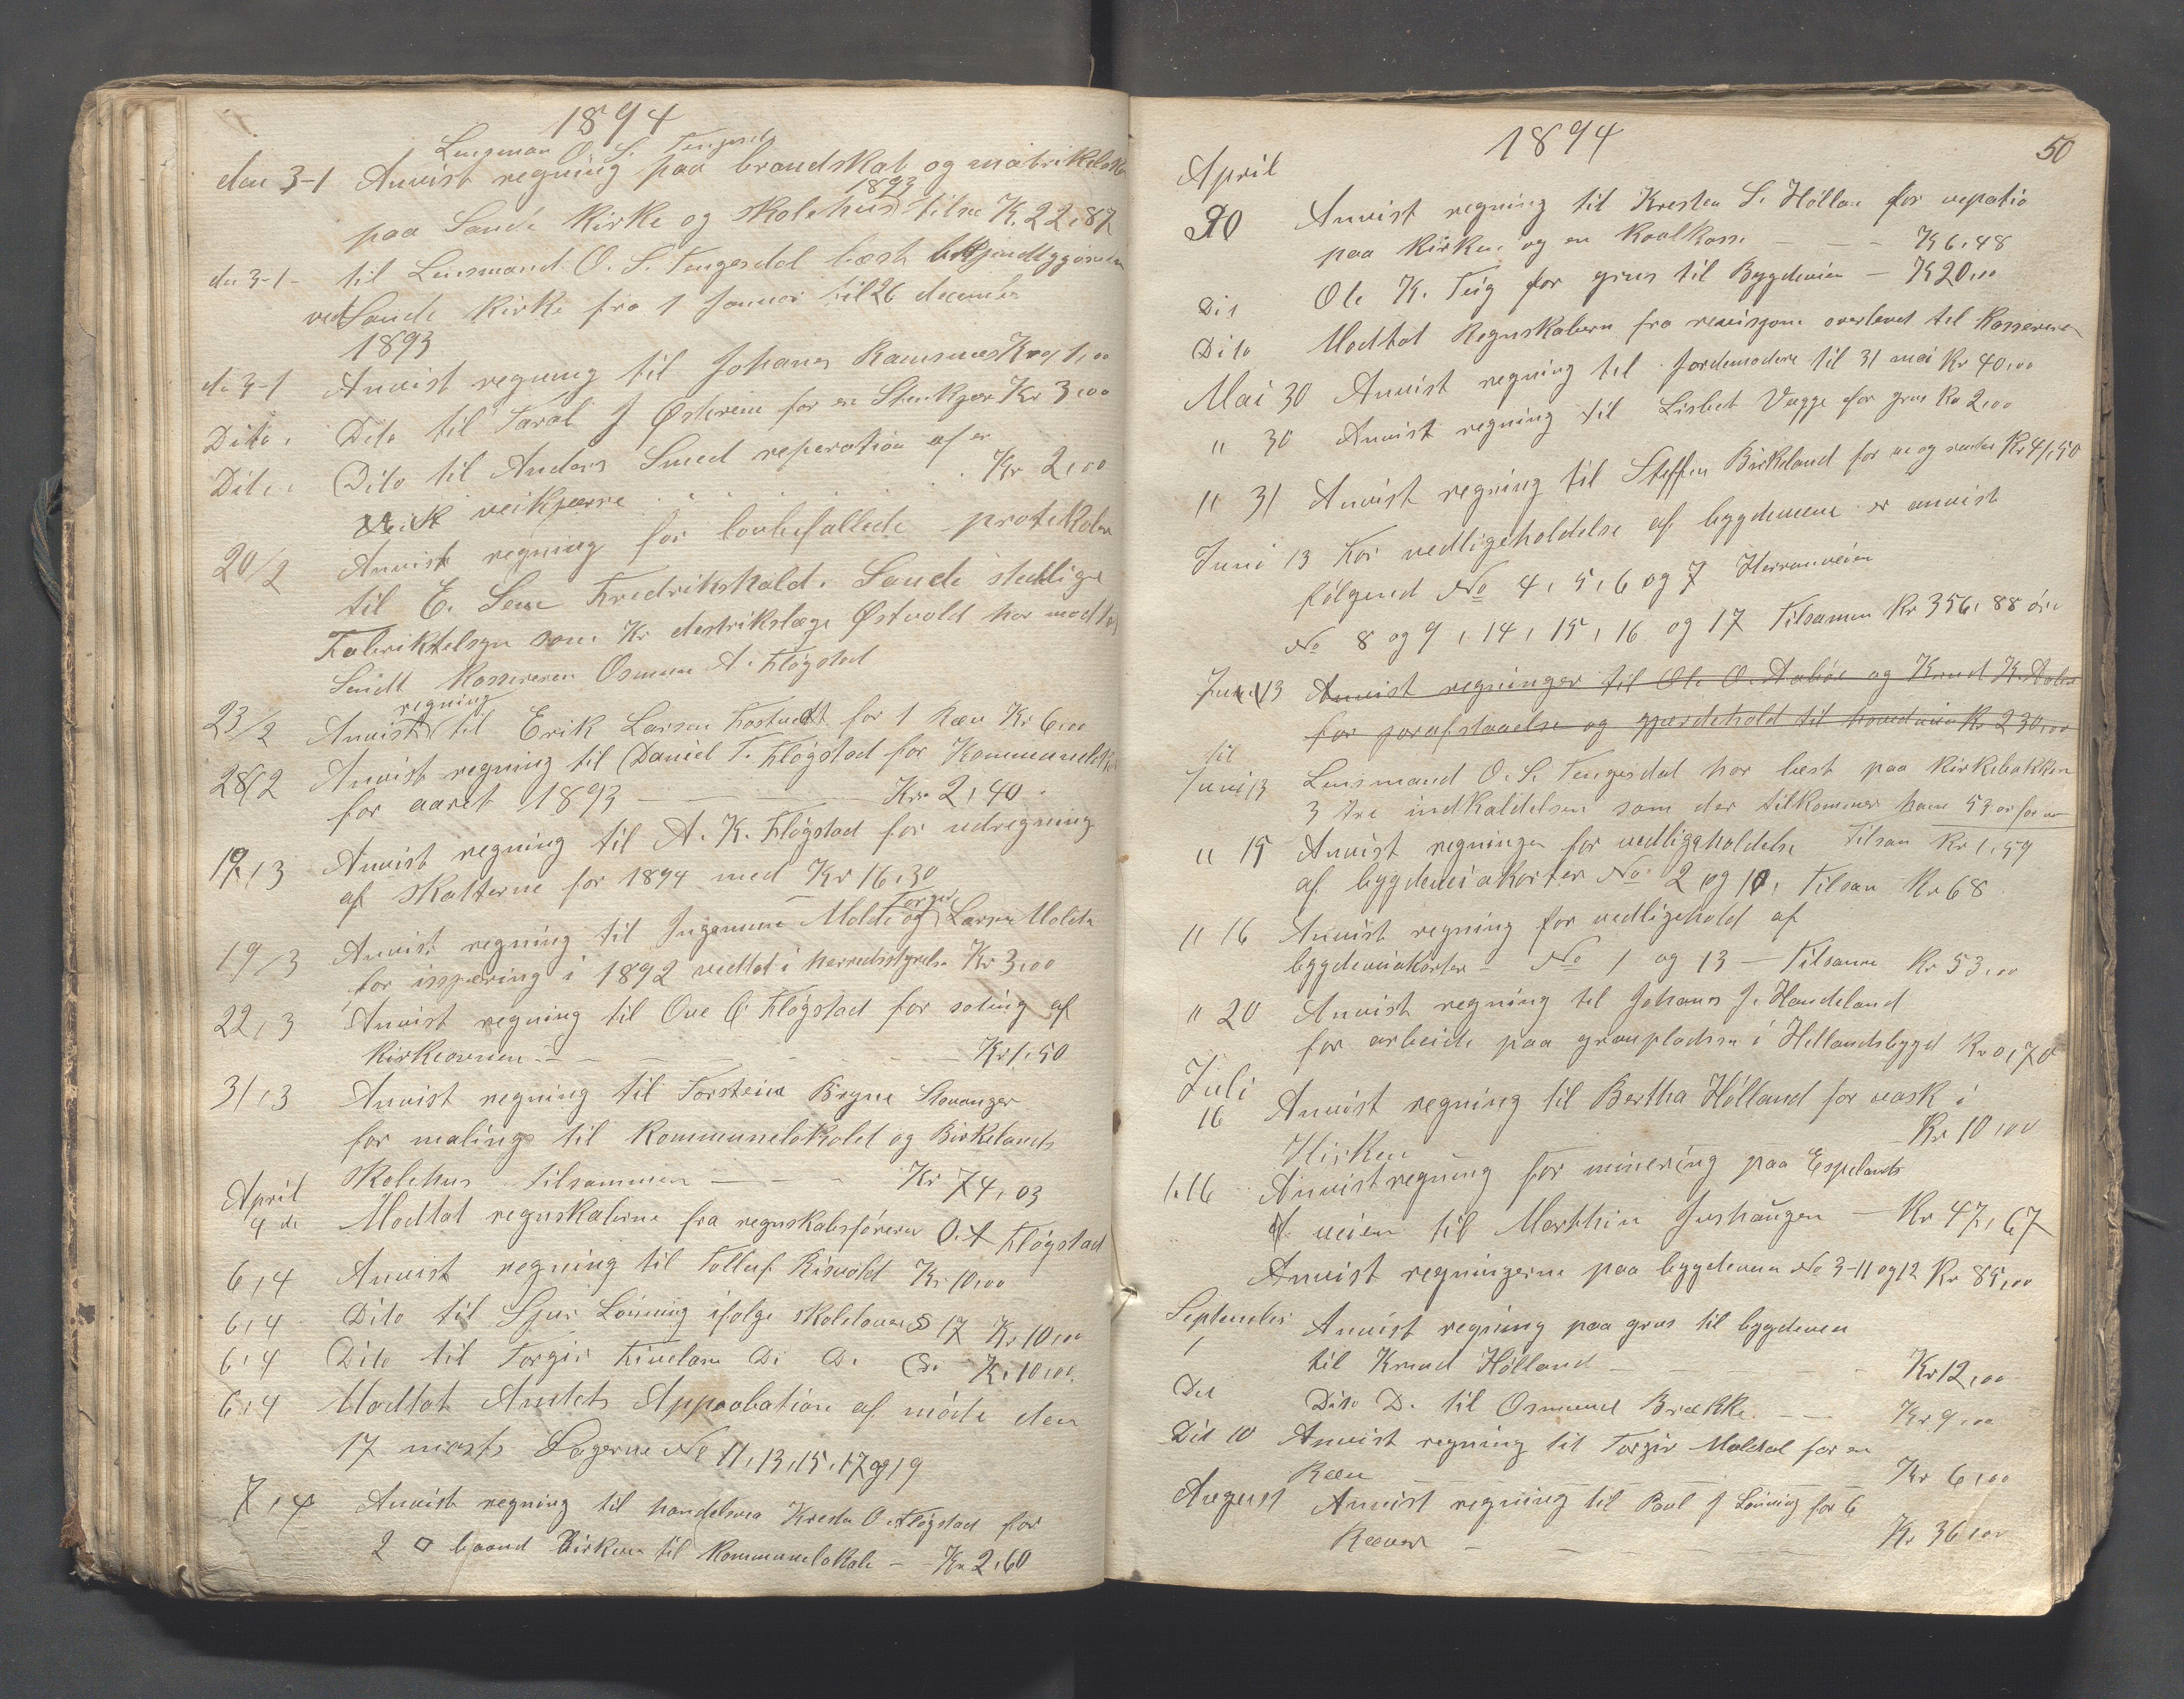 1894
Lensman O. S. Tengesdal
den 3-1 Anvist regning paa brandskat og matrikelsk
1893
paa Sande Kirke og skolehus tilsa K. 22,87
den 3-1 - til Lensmand O. S. Tengesdal læst bekjendtggjørelser
ved Sande Kirke fra 1 Januar til 26 december
1893
de 3-1 Anvist regning til Johanes Ramsnes Kr 1,00
Dito. Dito til Taral J Østrem for en Stenkjær Kr 3,00
Dito. Dito til Anders Smed reperation af en
veikjærre Kr 2,00
20/2 Anvist regning for lovbefallede protokoler
til E. Sem Fredrikshald. Sande stedlige
Fabriktelsyn som Kr destrikslæge Østvold har modtat
Sendt Kassereren Osmun A. Fløgstad
regning
23/2 Anvist til Erik Larsen Fostvedt for 1 Ræv Kr 6,00
28/2 Anvist regning til Daniel T. Fløgstad for Kommunelok
for aaret 1893 — Kr. 2,40.
19/3 Anvist regning til A. K. Fløgstad for udregning
af skatterne for 1894 med Kr 16,30
Torger
19/3 Anvist regning til Ingemun Molde og Larsen Molde
for isspæring i 1892 vedtat i herredsstyrelse Kr 3,00
22,3 Anvist regning til Ove C Fløgstad for soting af
Kirkeovnen - - - Kr 1,50
31,3 Anvist regning til Torstein Bryne Stavanger
for maling til Kommunelokalet og Birkelands
skolehus tilsammen - - - Kr 74,03
April
4 de Modtat regnskaberne fra regnskabsføreren O. A Fløgstad
6,4 Anvist regning til Tolluf Risvold Kr 10,00
6,4 Dito til Sjur Lønning ifølge skoleloven § 17 Kr 10,00
6,4 Dito til Torgir Kivelan Di D. Kr 10,00.
6,4 Modtat Amtets Approbation af møde den
17 marts Sagerne No 11,13,15,17 og 19
7,4 Anvist regning til handelsma Kresten O. Fløgstad for
2 baand til Kommunelokale - - Kr 2,60
1894
50
April
20 Anvist regning til Kresten S. Hølland for repatio
paa Kirken og en Koolkasse - - - K 6,48
Dit Ole K. Teig for grus til Bygdeveien - K 20,00
Dito Modtat Regnskabern fra revisjone overleved til Kassereren
Mai 30 Anvist regning til Jordemodere til 31 mai Kr 40,00
" 30 Anvist regning til Lisbet Vægge for grus Kr 2,00
" 31 Anvist regning til Steffen Birkeland for Kr 41,50
Juni 13 For vedligeholdelse af bygdeveiene er anvist
følgend No 4, 5, 6 og 7 Herremveien
No 8 og 9, 14, 15, 16 og 17 Tilsamen Kr 356,88 øre
Juni 13 Anvist regninger til Ole O. Aabøe og Knud K. Aabø
for jorafstaaelse og gjærdehold til hovedveien Kr 230,00
til
Juni 13 Lensmand O. S. Tengesdal har læst paa Kirkebakken
3 tre indkaldelser som der tilkommer ham 53 ør for
" 15 Anvist regninger for vedligeholdelse Tilsam Kr 1,59
af bygdeveiakorter No 2 og 10, Tilsam Kr 68
" 16 Anvist regning for vedligehold af
bygdeveiakorter - No 1 og 13 - Tilsamn Kr 53,00
" 20 Anvist regning til Johanes J. Handeland
for arbeide paa gravpladsen i Hellandsbygd Kr 0,70
Juli
16 Anvist regning til Bertha Hølland for vask i
Kirken Kr 10,00
" 16 Anvist regning for minering paa Espelands
veien til Marthin Jushaugen - Kr 47,67
Anvist regningerne paa bygdeveien No 3-11 og 12 Kr 85,00
September
1 Anvist regning paa grus til bygdeveien
til Knud Hølland - - - Kr 12,00
Dit Dito D. til Osmund Brække - - Kr 9,00
Dit 10 Anvist regning til Torgir Maldal for en
Ræv Kr 6,00
August Anvist regning til Poul J Lønning for 6
Ræver - - - Kr 36,00